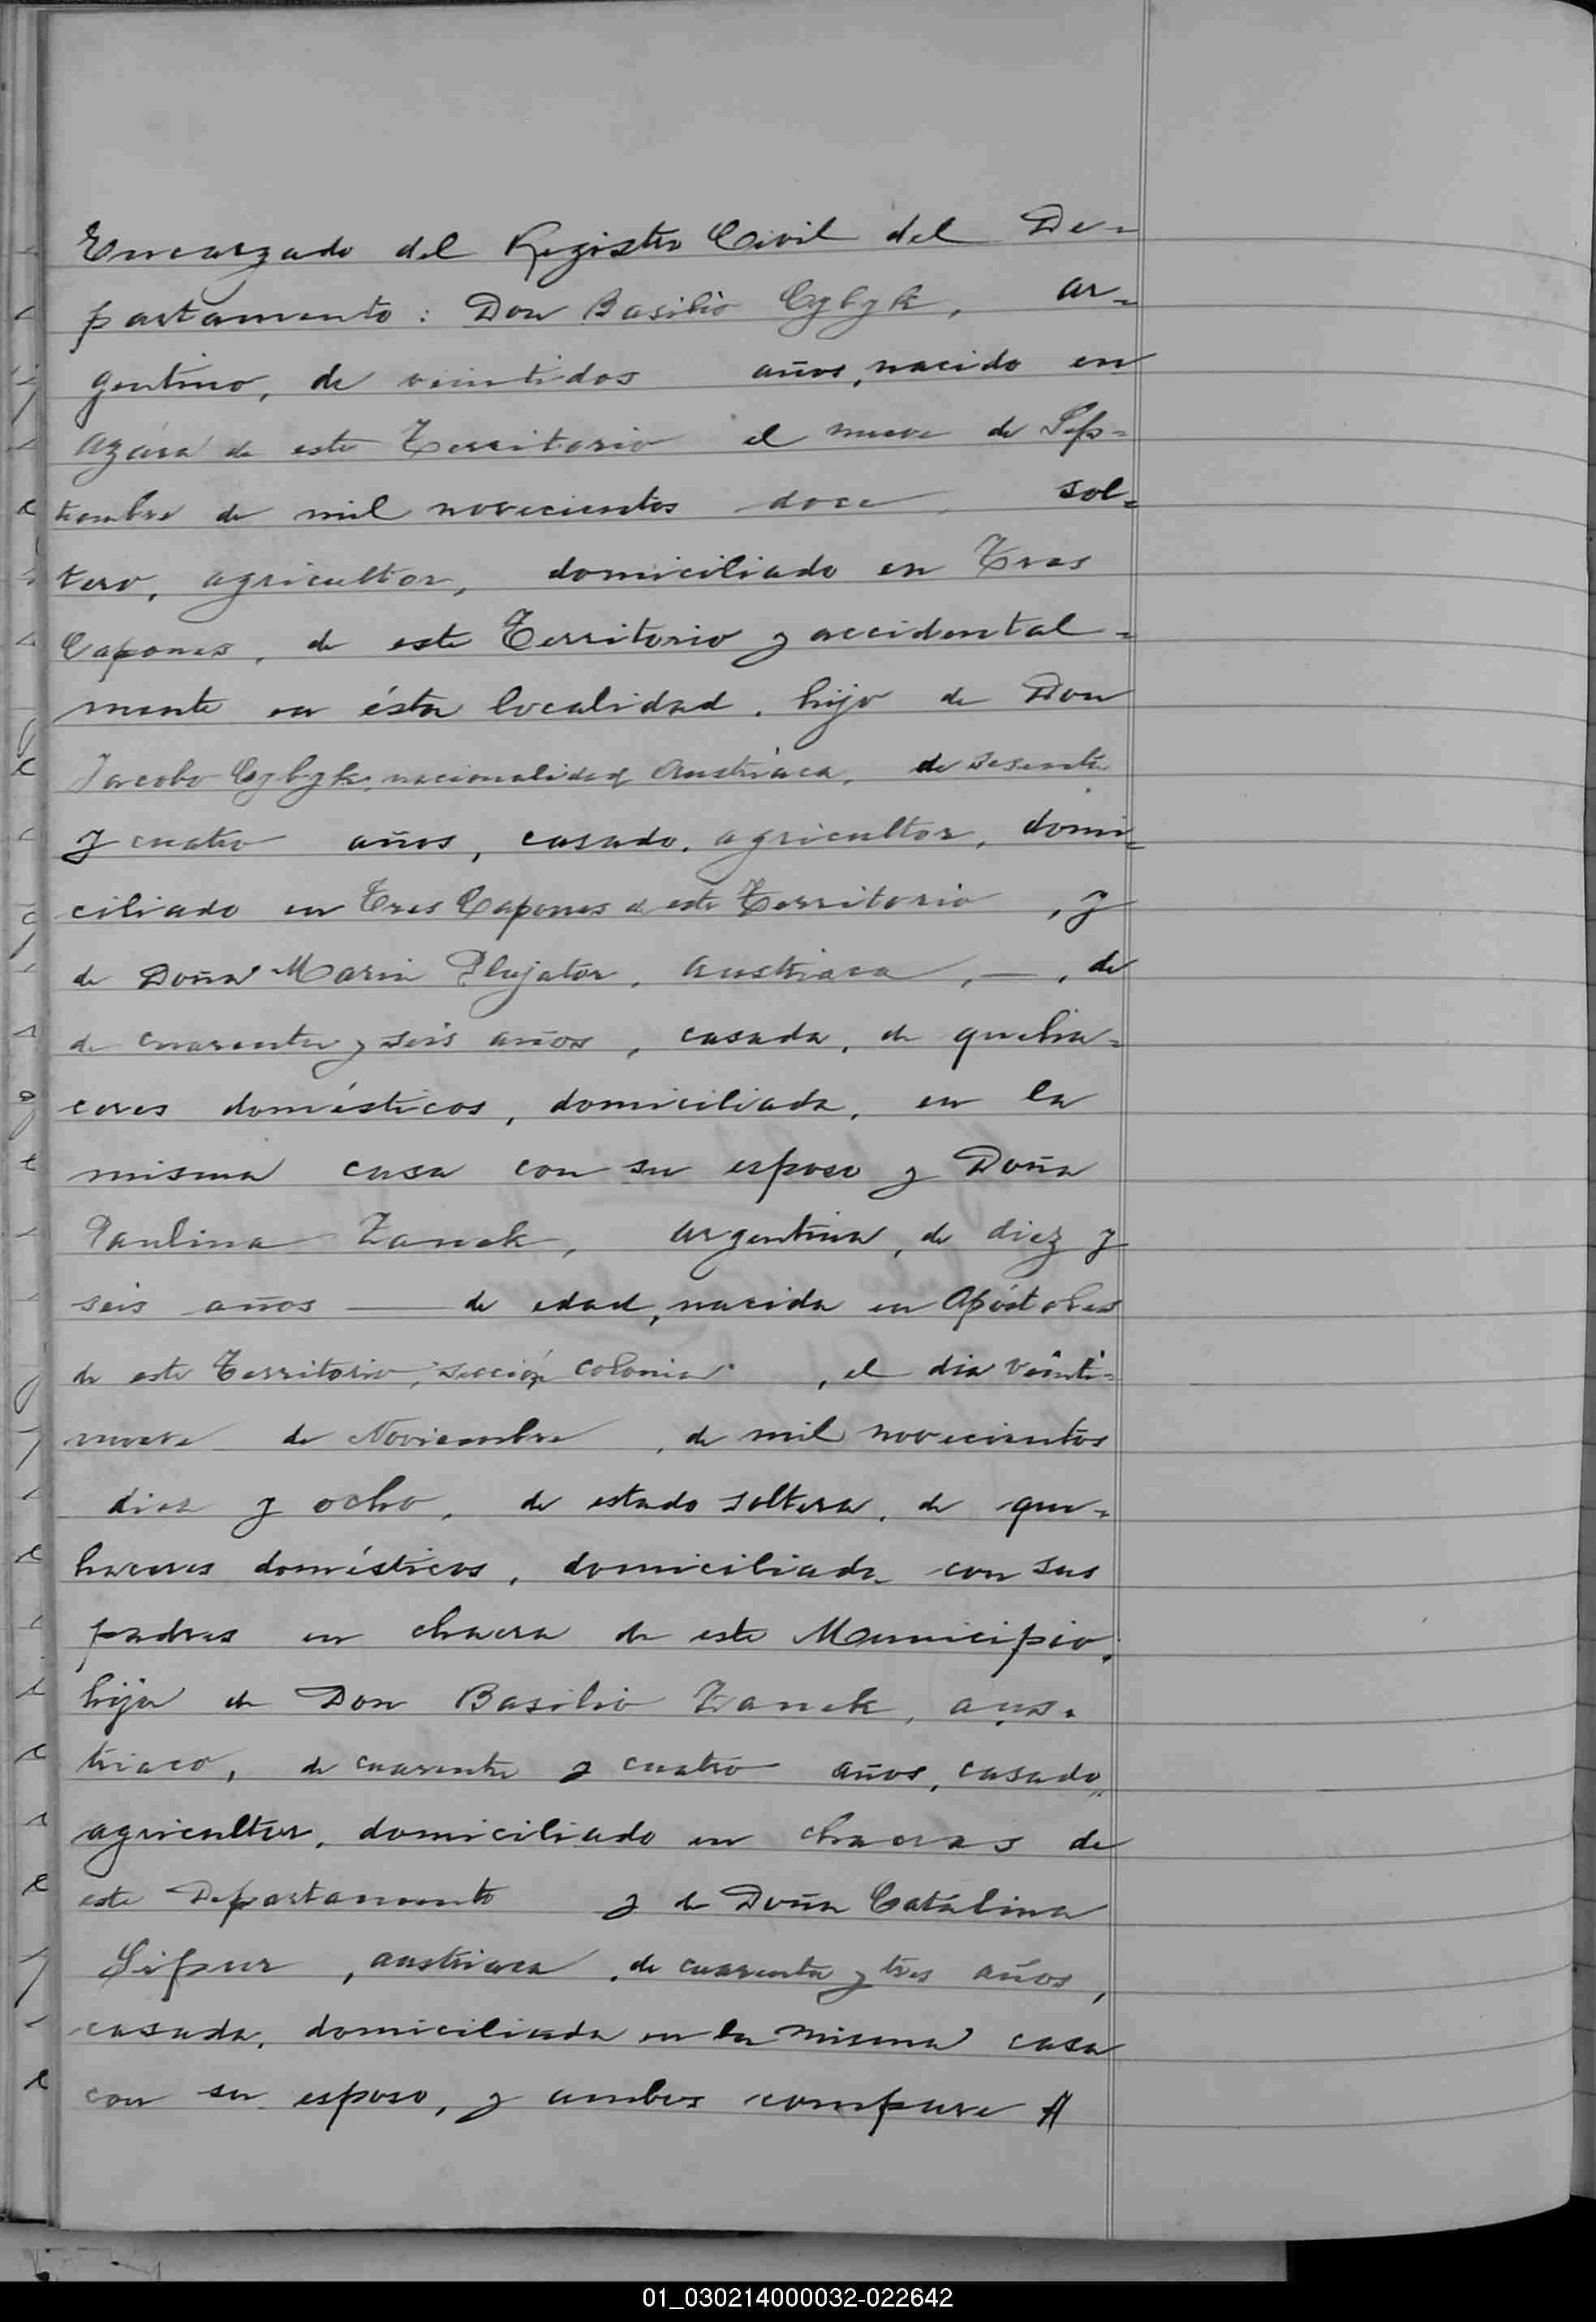 Encargado del Registro Civil del De-
partamento: Don Basilio Cybyk, ar-
gentino, de veintidos años, nacido en
Azára de este Territorio el nueve de Sep-
tiembre de mil novecientos doce, sol-
tero, agricultor, domiciliado en Tres
Capones, de este Territorio y accidental-
mente en ésta localidad, hijo de Don
Jacobo Cybyk, nacionalidad Austriaca, de sesenta
y cuatro años, casado, agricultor, domi-
ciliado en Tres Capones de este Territorio, y
de Doña Maria Plujator, austriaca, —, de
de cuarenta y seis años, casada, de queha-
ceres domésticos, domiciliada, en la
misma casa con su esposo y Doña
Paulina Zanek, argentina, de diez y
seis años — de edad, nacida en Apóstoles
de este Territorio, "sección colonia", el dia veinti-
nueve de Noviembre, de mil novecientos
diez y ocho, de estado soltera, de que-
haceres domésticos, domiciliada con sus
padres en chacra de este Municipio,
hija de Don Basilio Zanek, aus-
triaco, de cuarenta y cuatro años, casado,
agricultor, domiciliado en chacras de
este Departamento y de Doña Catalina
Sipur, austriaca, de cuarenta y tres años,
casada, domiciliada en la misma casa
con su esposo, y ambos compare
01_030214000032-022642